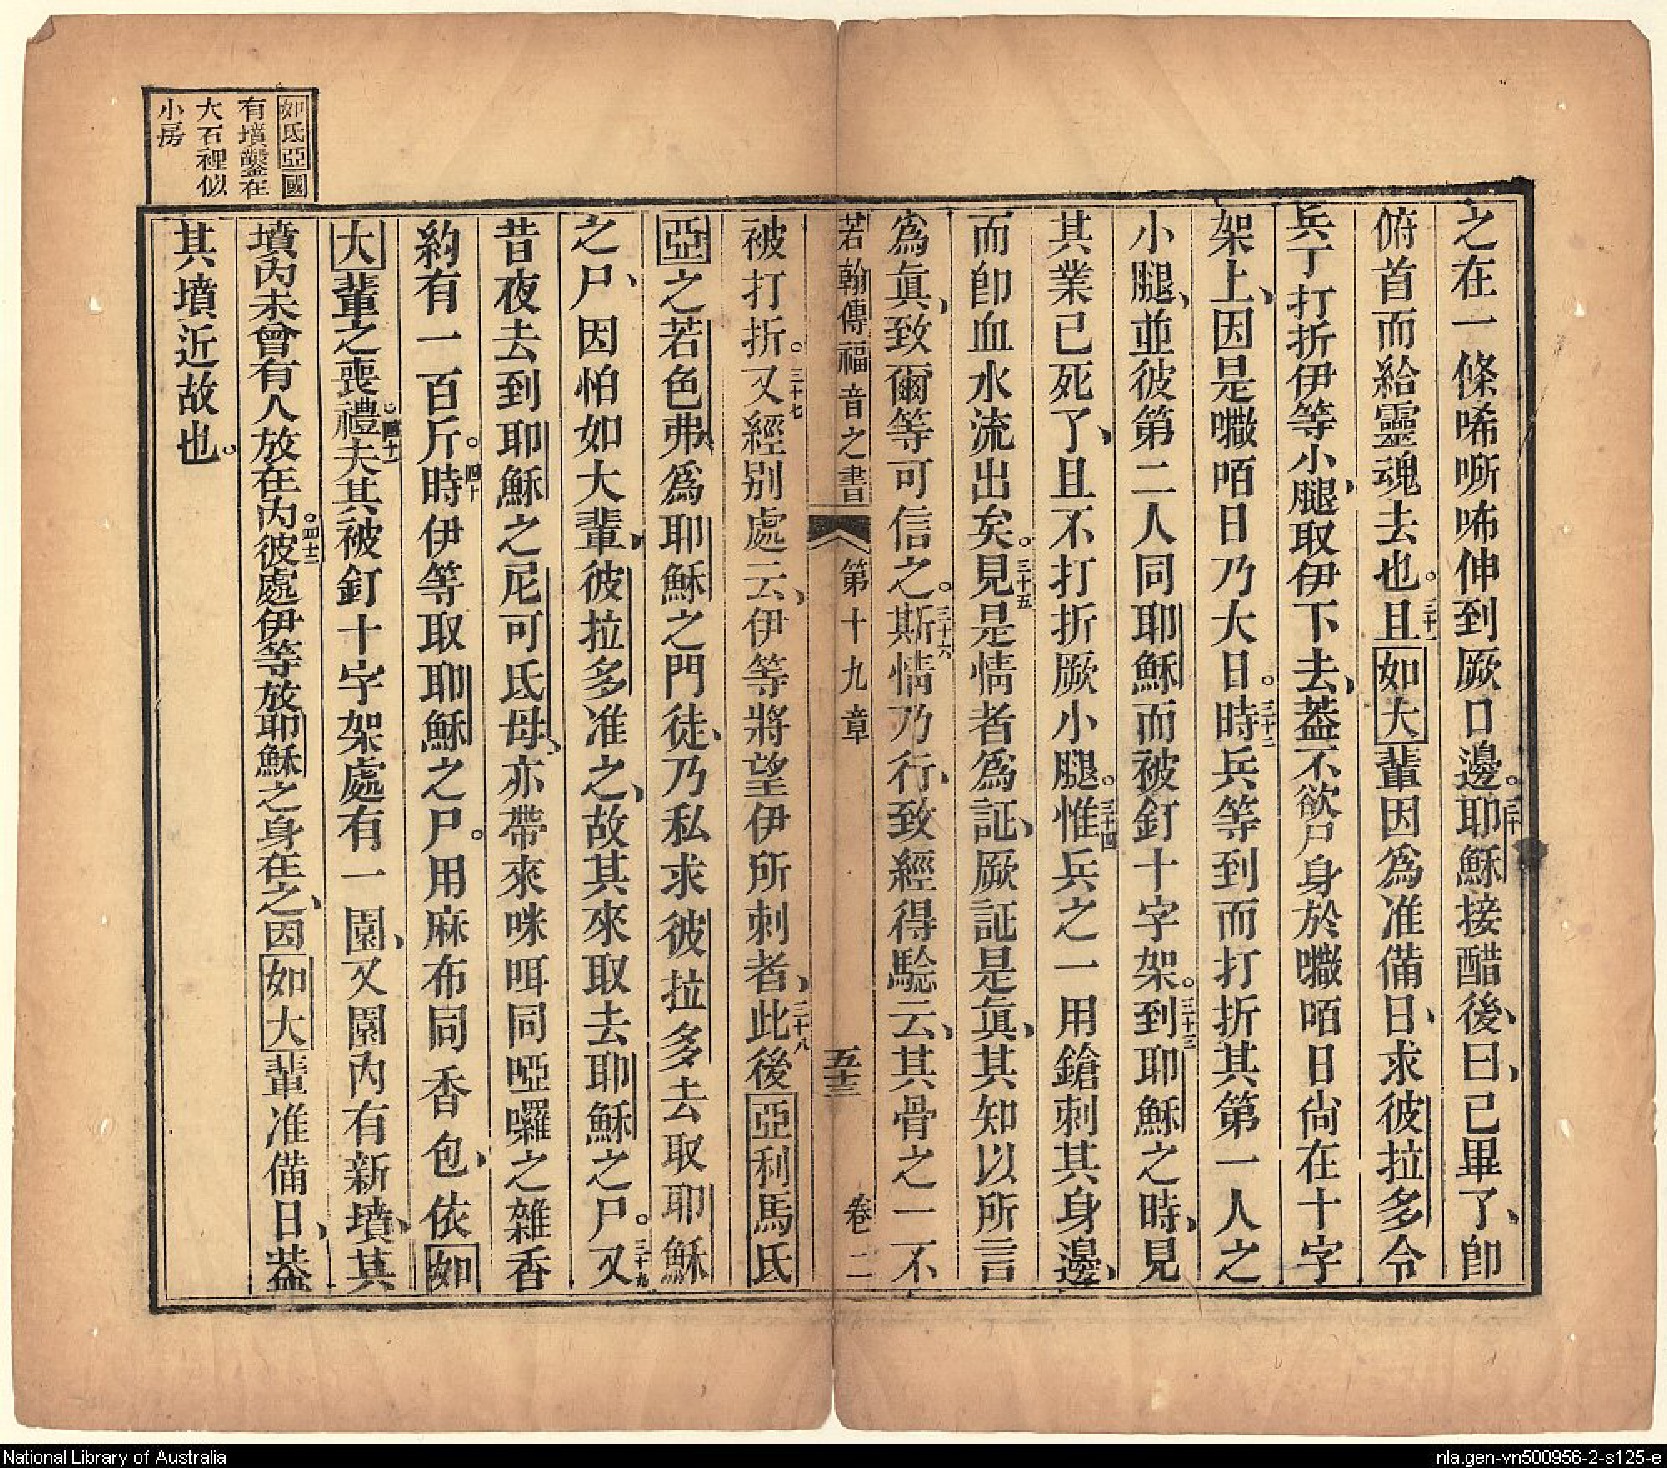 之在一條唏嘶咘伸到厥口邊。三十耶穌接醋後、曰、已畢了、卽
俯首而給靈魂去也。三十一且如大輩因爲准備日、求彼拉多令
兵丁打折伊等小腿、取伊下去、葢不欲尸身於㘔咟日尙在十字
架上、因是㘔咟日乃大日。三十二時兵等到而打折其第一人之
小腿、並彼第二人同耶穌而被釘十字架。三十三到耶穌之時、見
其業已死了、且不打折厥小腿。三十四惟兵之一用鎗刺其身邊、
而卽血水流出矣。三十五見是情者爲証、厥証是眞、其知以所言
爲眞、致爾等可信之。三十六斯情乃行、致經得騐云、其骨之一不
若翰傳福音之書 第十九章 五十三 卷二
被打折。三十七又經别處云、伊等將望伊所刺者、三十八此後亞利馬氏
亞之若色弗爲耶穌之門徒、乃私求彼拉多去取耶穌
之尸、因怕如大輩、彼拉多准之、故其來取去耶穌之尸。三十九又
昔夜去到耶穌之尼可氐母、亦帶來咪咡同啞囉之雜香
約有一百斤。四十時伊等取耶穌之尸。用麻布同香包、依如
大輩之喪禮。四十一夫其被釘十字架處有一園、又園內有新墳、其
墳內未曾有人放在內。四十二彼處伊等放耶穌之身在之、因如大輩准備日、葢
其墳近故也。
如氐亞國
有墳鑿在
大石裡似
小房
National Library of Australia
nla.gen-vn500956-2-s125-e